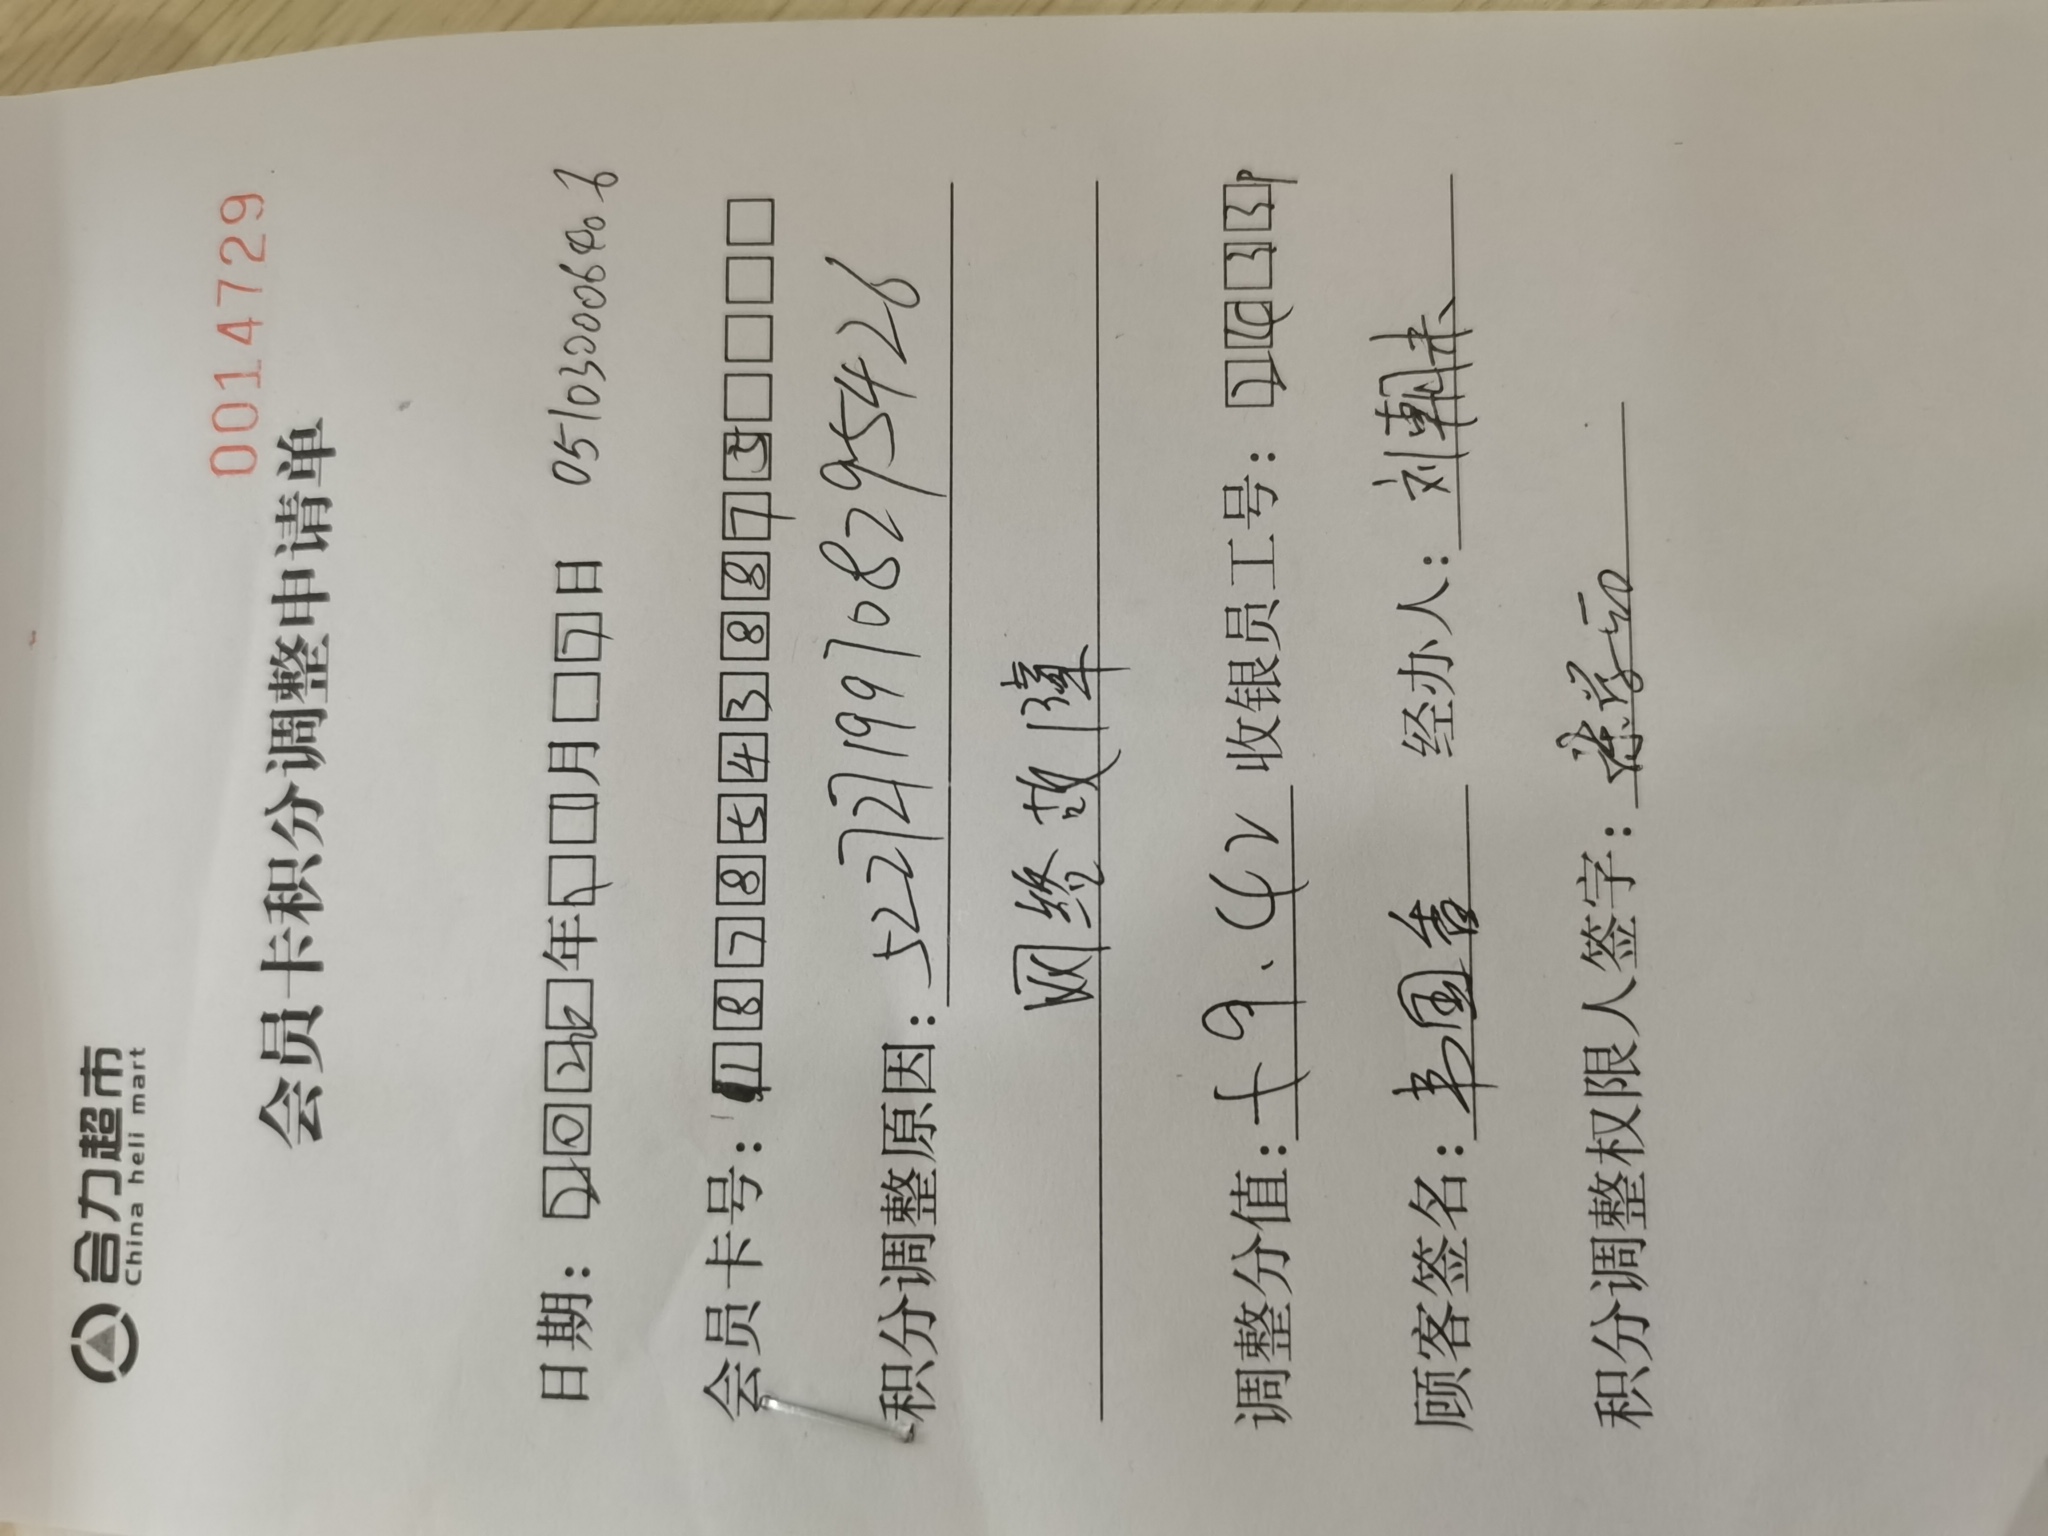 合力超市
China heli mart
0014729
会员卡积分调整申请单
日期：2022年 1月 7日 05103000640
会员卡号：18785438875
积分调整原因：52272199708295426
网终故障
调整分值：59.42 收银员工号：
顾客签名：韦国香 经办人：刘朝未
积分调整权限人签字：